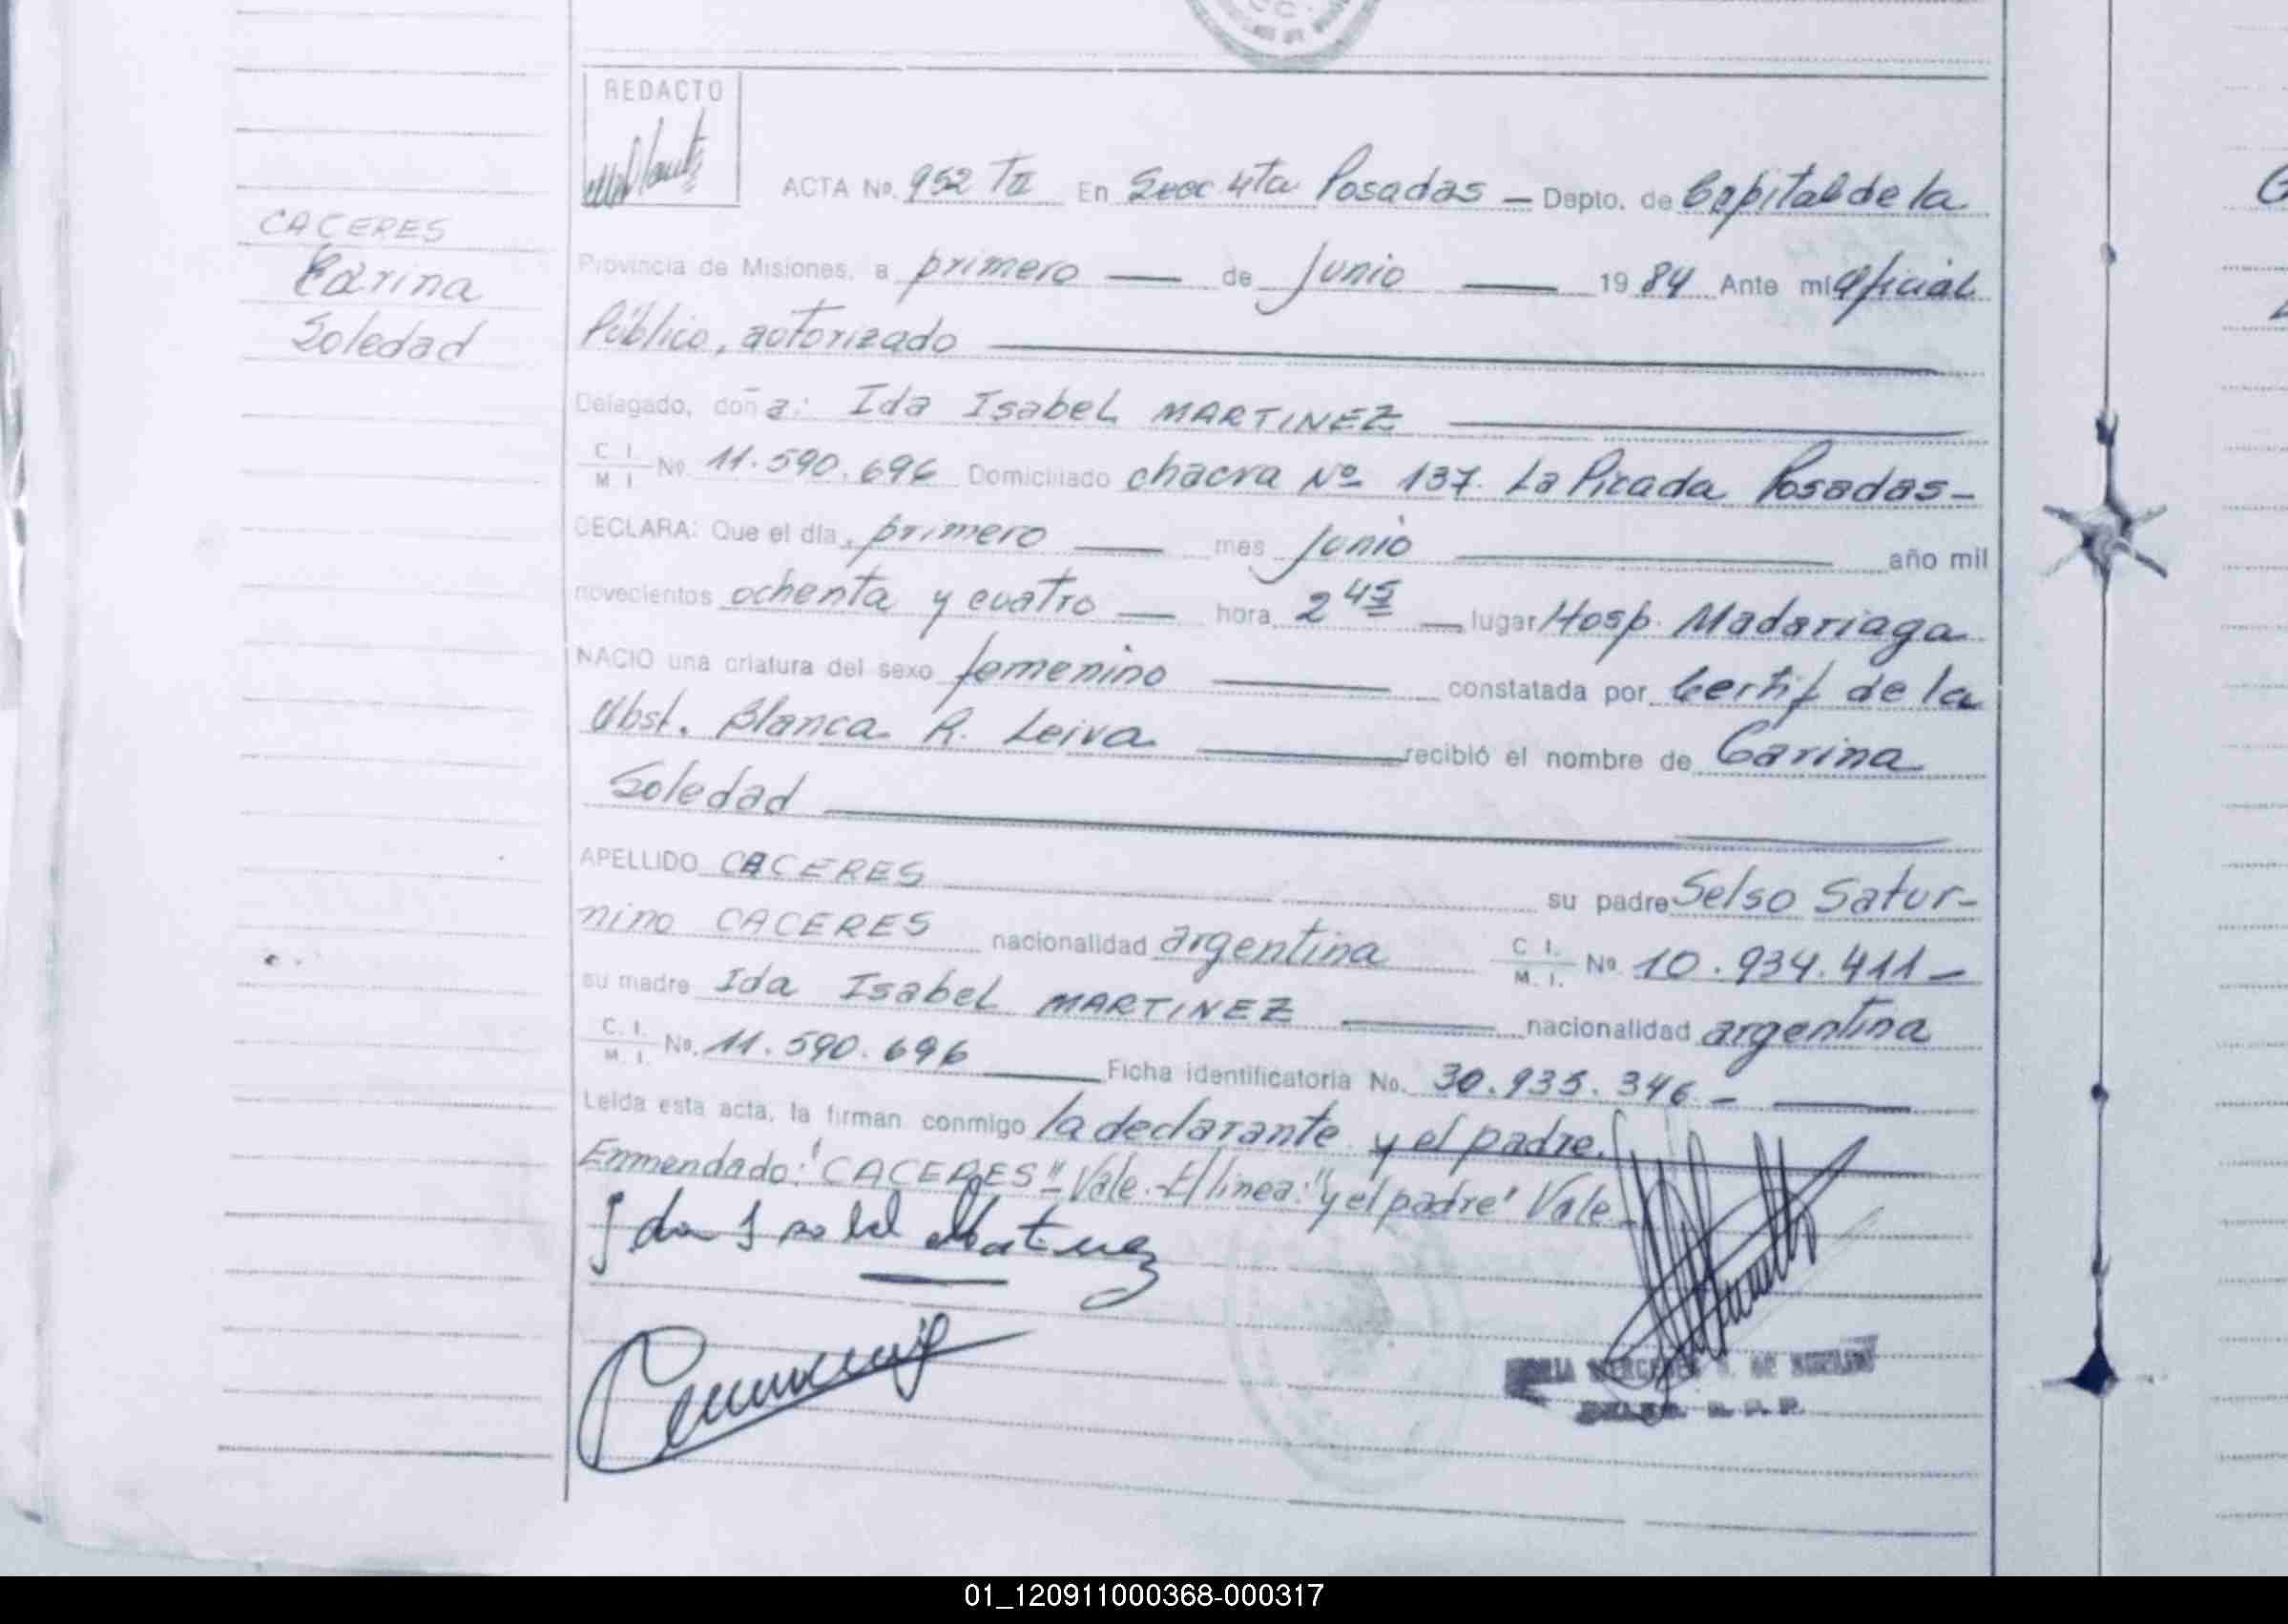 REDACTO
ACTA No. 952 TII En Secc 4ta Posadas — Depto. de Capital de la
CACERES
Carina
Soledad
Provincia de Misiones, a primero — de Junio — 1984 Ante mi Oficial
Público, autorizado
Delegado, doña: Ida Isabel MARTINEZ
C I
M I
No. 11.590.696 Domiciliado chacra Nº 137. La Picada Posadas-
DECLARA: Que el día, primero — mes Junio — año mil
novecientos ochenta y cuatro — hora 2 45 — lugar Hosp. Madariaga
NACIO una criatura del sexo femenino — constatada por Certif de la
Obst. Blanca R. Leiva — recibió el nombre de Carina
Soledad
APELLIDO CACERES su padre Selso Satur-
nino CACERES nacionalidad argentina C I. M. I. No. 10.934.411 —
su madre Ida Isabel MARTINEZ — nacionalidad argentina
C. I. M. I. No. 11.590.696 — Ficha identificatoria No. 30.935.346 - —
Leída esta acta, la firman conmigo la declarante y el padre.
Enmendado: "CACERES" Vale.-E/línea: "y el padre" Vale-
Ida Isabel Martinez
01_120911000368-000317